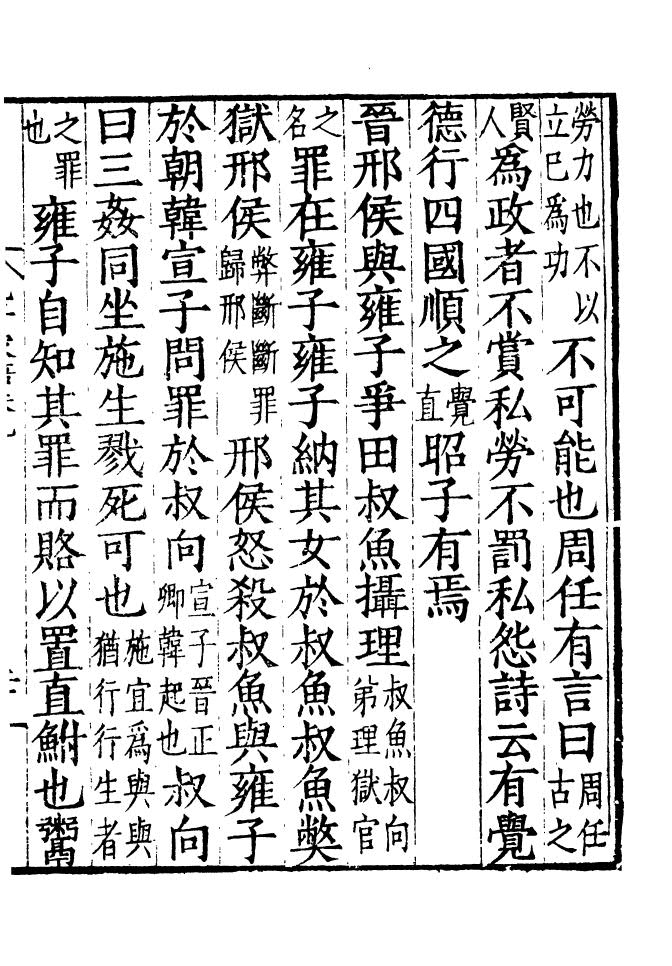 勞力也不以立巳爲功不可能也周任有言曰周任古之
賢人爲政者不賞私勞不罰私怨詩云有覺
德行四國順之覺直昭子有焉
晉邢侯與雍子爭田叔魚攝理叔魚叔向弟理獄官
之名罪在雍子雍子納其女於叔魚叔魚獘
獄邢侯獘斷斷罪歸邢侯邢侯怒殺叔魚與雍子
於朝韓宣子問罪於叔向宣子晉正卿韓起也叔向
曰三姦同坐施生戮死可也施宜爲與與猶行行生者
之罪也雍子自知其罪而賂以置直鮒也鬻